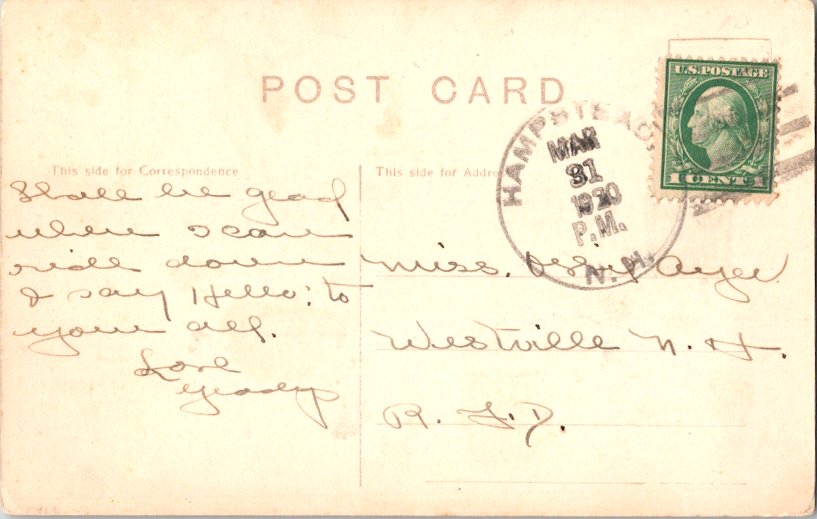 POST CARD
This side for Correspondence
This side for Addre
U.S. POSTAGE
1 CENT 1
HAMPSTEAD,
MAR
31
1920
P.M.
N.H.
Shall be glad
when I can
ride down
& say Hello: to
your all.
Love
Miss. Ayer
Westville N. H.
R. F. D.